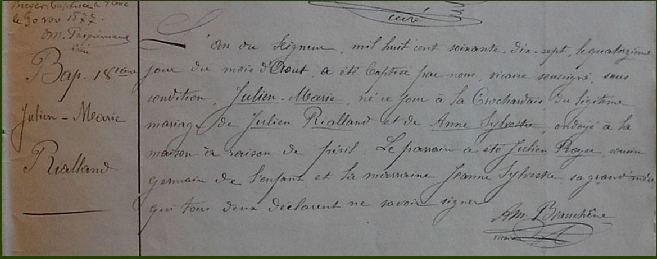 le 30 nov 1877
curé
Bap. 18ième
Julien-Marie
Rialland
L'an du Seigneur, mil huit cent soixante-dix-sept, le quatorzième
jour du mois d'Août, a été baptisé par nous, vicaire soussigné, sous
condition, Julien-Marie, né ce jour à la Crochardais du légitime
mariage de Julien Rialland et de Anne Sylvestre, ondoyé à la
maison à raison de péril. Le parrain a été Julien Royer, cousin
germain de l'enfant et la marraine Jeanne Sylvestre sa grand'mère
qui tous deux déclarent ne savoir signer.